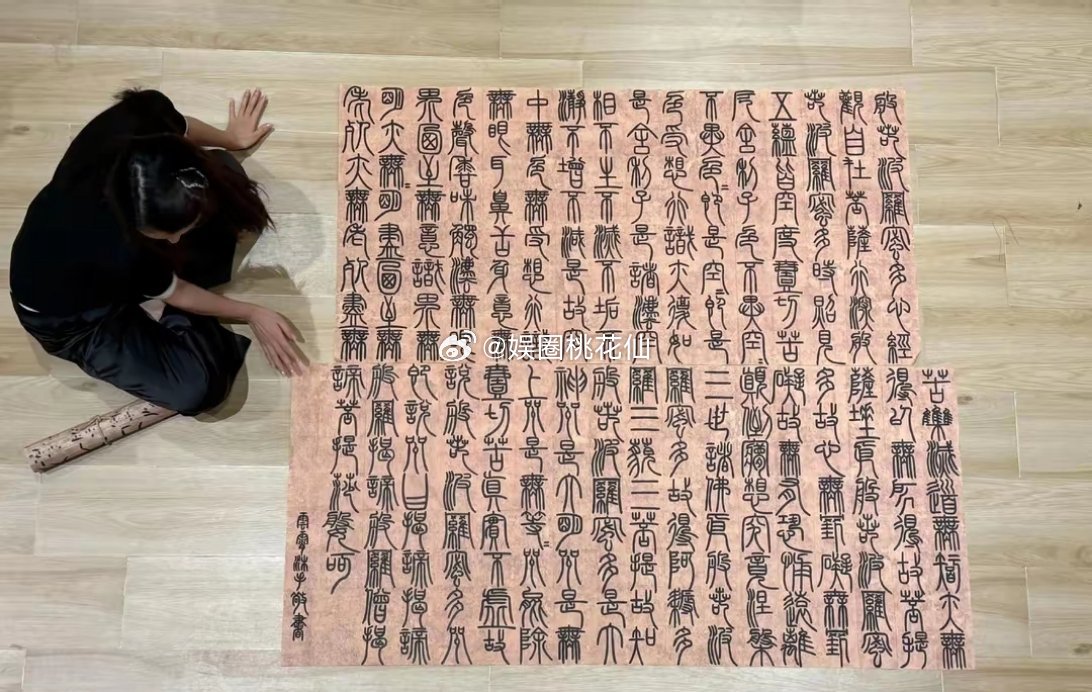 般若波羅蜜多心經
觀自在菩薩行深般
若波羅蜜多時照見
五蘊皆空度一切苦
厄舍利子色不異空=
不異色=即是空=即是
色受想行識亦復如
是舍利子是諸法空
相不生不滅不垢不
淨不增不減是故空
中無色無受想行識
無眼耳鼻舌身意無
色聲香味觸法無眼
界乃至無意識界無
無明亦無=明盡乃至無
老死亦無老死盡無
苦集滅道無智亦無
得以無所得故菩提
薩埵依般若波羅蜜
多故心無罣礙無罣
礙故無有恐怖遠離
顛倒夢想究竟涅槃
三世諸佛依般若波
羅蜜多故得阿耨多
羅三藐三菩提故知
般若波羅蜜多是大
神咒是大明咒是無
上咒是無等=咒能除
一切苦真實不虛故
說般若波羅蜜多咒
即說咒曰揭諦揭諦
般羅揭諦般羅僧揭
諦菩提莎婆訶
沐手敬書
@娱圈桃花仙